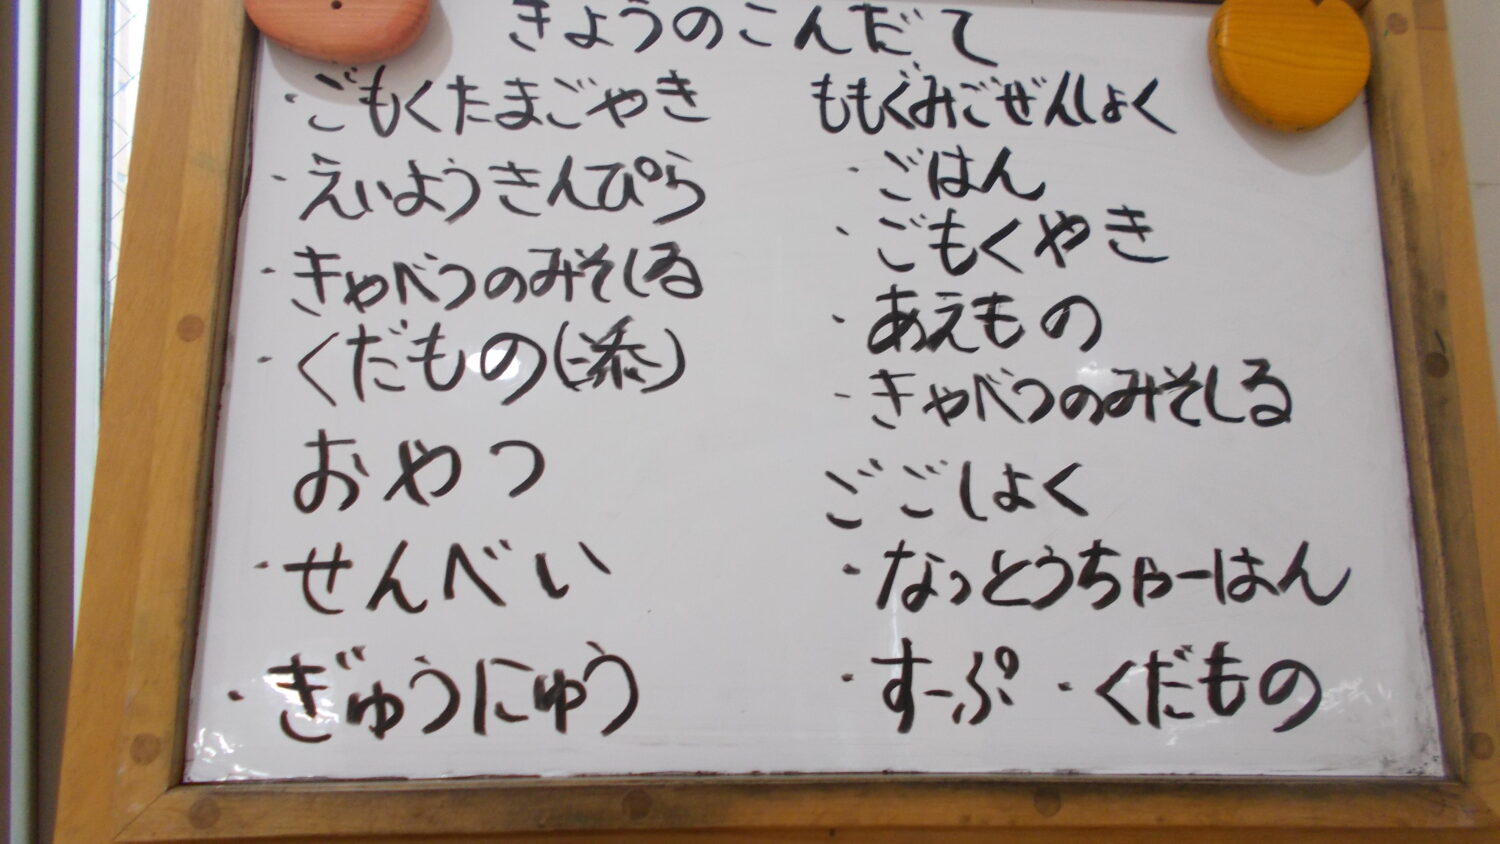 きょうのこんだて
・ごもくたまごやき
・えいようきんぴら
・きゃべつのみそしる
・くだもの(添)
おやつ
・せんべい
・ぎゅうにゅう
ももぐみごぜんしょく
・ごはん
・ごもくやき
・あえもの
・きゃべつのみそしる
ごごしょく
・なっとうちゃーはん
・すーぷ ・くだもの